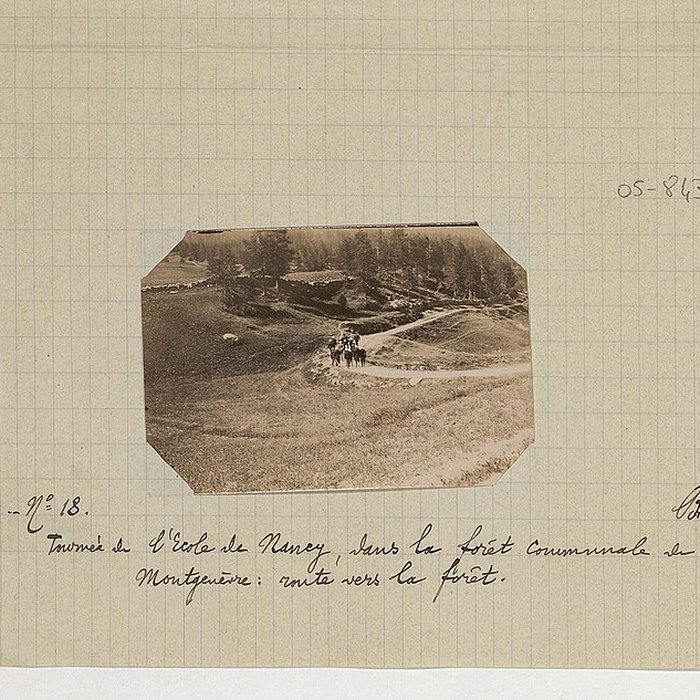 05-843
N° 18.
Tournée de l'Ecole de Nancy, dans la forêt communale de
Montgenèvre : route vers la forêt.